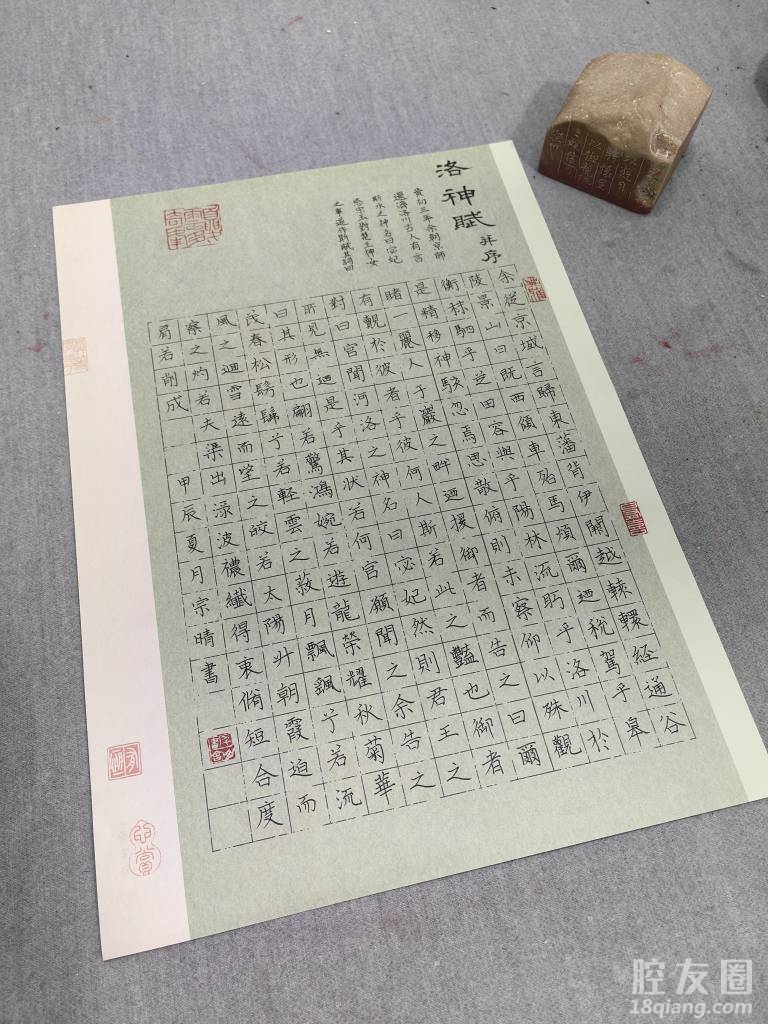 洛神賦 并序
黃初三年余朝京師
還濟洛川古人有言
斯水之神名曰宓妃
感宋玉對楚王神女
之事遂作斯賦其詞曰
余從京域言歸東藩背伊闕越轘轅經通谷
陵景山日既西傾車殆馬煩爾迺稅駕乎皋
衡秣駟乎芝田容與乎陽林流眄乎洛川於
是精移神駭忽焉思散俯則未察仰以殊觀
睹一麗人于巖之畔迺援御者而告之曰爾
有覿於彼者乎彼何人斯若此之豔也御者
對曰官聞河洛之神名曰宓妃然則君王之
所見無迺是乎其狀若何官願聞之余告之
曰其形也翩若驚鴻婉若遊龍榮耀秋菊華
茂春松髣髴兮若輕雲之蔽月飄颻兮若流
風之迴雪遠而望之皎若太陽升朝霞迫而
察之灼若夫渠出淥波襛纖得衷脩短合度
肩若削成 甲辰夏月宗晴書
腔友圈
18qiang.com